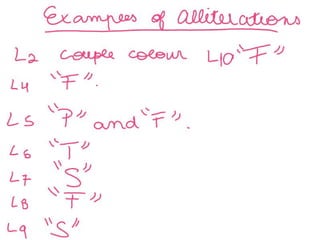 Examples of alliterations
L2 couple colour L10 "F"
L4 "F".
L5 "P" and "F".
L6 "T"
L7 "S"
L8 "F"
L9 "S"